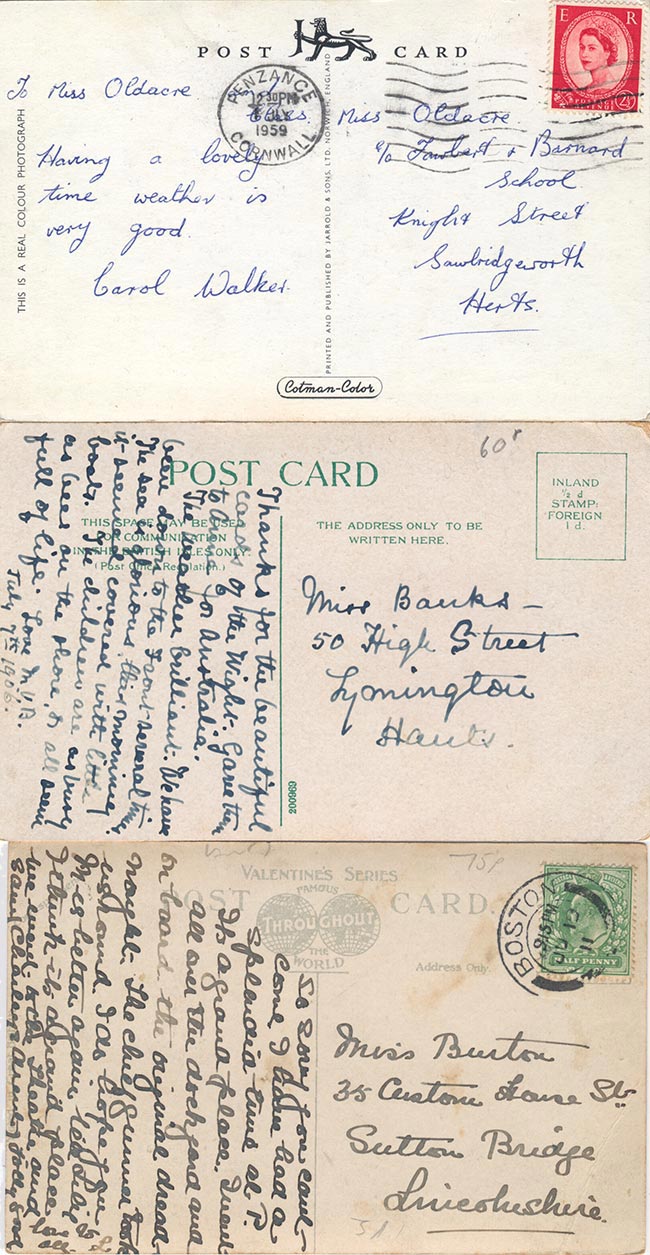 POST CARD
E R
2½
To Miss Oldacre
PENZANCE
12 30 PM
1959
CORNWALL
Having a lovely
time weather is
very good.
Carol Walker.
Miss Oldacre
c/o Fawbert & Barnard
School
Knight Street
Sawbridgeworth
Herts.
THIS IS A REAL COLOUR PHOTOGRAPH
PRINTED AND PUBLISHED BY JARROLD & SONS, LTD. NORWICH, ENGLAND
Cotman-Color
60
POST CARD
THIS SPACE MAY BE USED
FOR COMMUNICATION
IN THE BRITISH ISLES ONLY.
(Post Office Regulation.)
THE ADDRESS ONLY TO BE
WRITTEN HERE.
INLAND
½ d
STAMP:
FOREIGN
1 d.
Thanks for the beautiful
cards of the Wight. Gave them
to Annie for Australia.
The weather brilliant. We have
been down to the Front several times.
The sea glorious this morning
it seemed covered with little
boats. The children are as busy
as bees on the shore, & all seem
full of life. Love M.U.B.
July 7th 1906.
Miss Banks –
50 High Street
Lymington
Hants.
200969
75p
VALENTINE'S SERIES
FAMOUS
THROUGHOUT
THE
WORLD
POST CARD.
Address Only.
BOSTON
9.15 PM
13
11
HALF PENNY
So sorry you cant
come I have had a
splendid time at P.
Its a grand place. I went
all over the dockyard and
on board the original dread-
nought. The chief gunner took
us round. I do hope you
M. is better again.
I think its a grand place.
we went to the theatre and
saw Charleys Aunt, jolly good
Miss Burton
35 Custom House St.
Sutton Bridge
Lincolnshire.